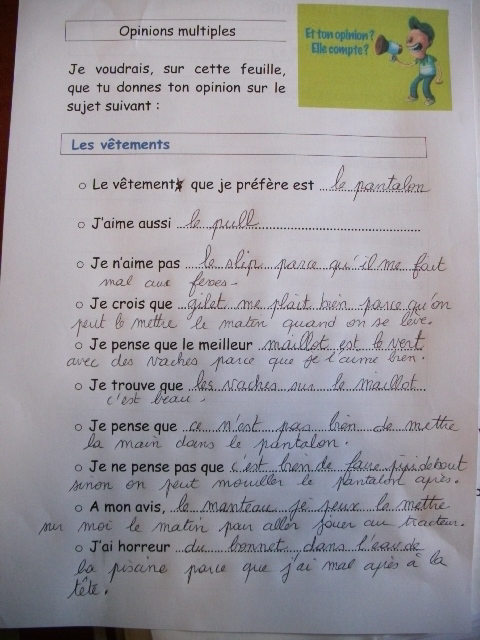 Opinions multiples
Et ton opinion?
Elle compte?
Je voudrais, sur cette feuille,
que tu donnes ton opinion sur le
sujet suivant :
Les vêtements
o Le vêtement que je préfère est ...le pantalon
o J'aime aussi ...le pull...
o Je n'aime pas ...le slip parce qu'il me fait
mal aux fesses.
o Je crois que ...gilet me plaît bien parce qu'on
peut le mettre le matin quand on se lève.
o Je pense que le meilleur ...maillot est le vert
avec des vaches parce que je l'aime bien.
o Je trouve que ...les vaches sur le maillot
c'est beau.
o Je pense que ...ce n'est pas bien de mettre
la main dans le pantalon.
o Je ne pense pas que c'est bien de faire pipi debout
sinon on peut mouiller le pantalon après.
o A mon avis, ...le manteau je peux le mettre
sur moi le matin pour aller jouer au tracteur.
o J'ai horreur ...du bonnet dans l'eau de
la piscine parce que j'ai mal après à la
tête.